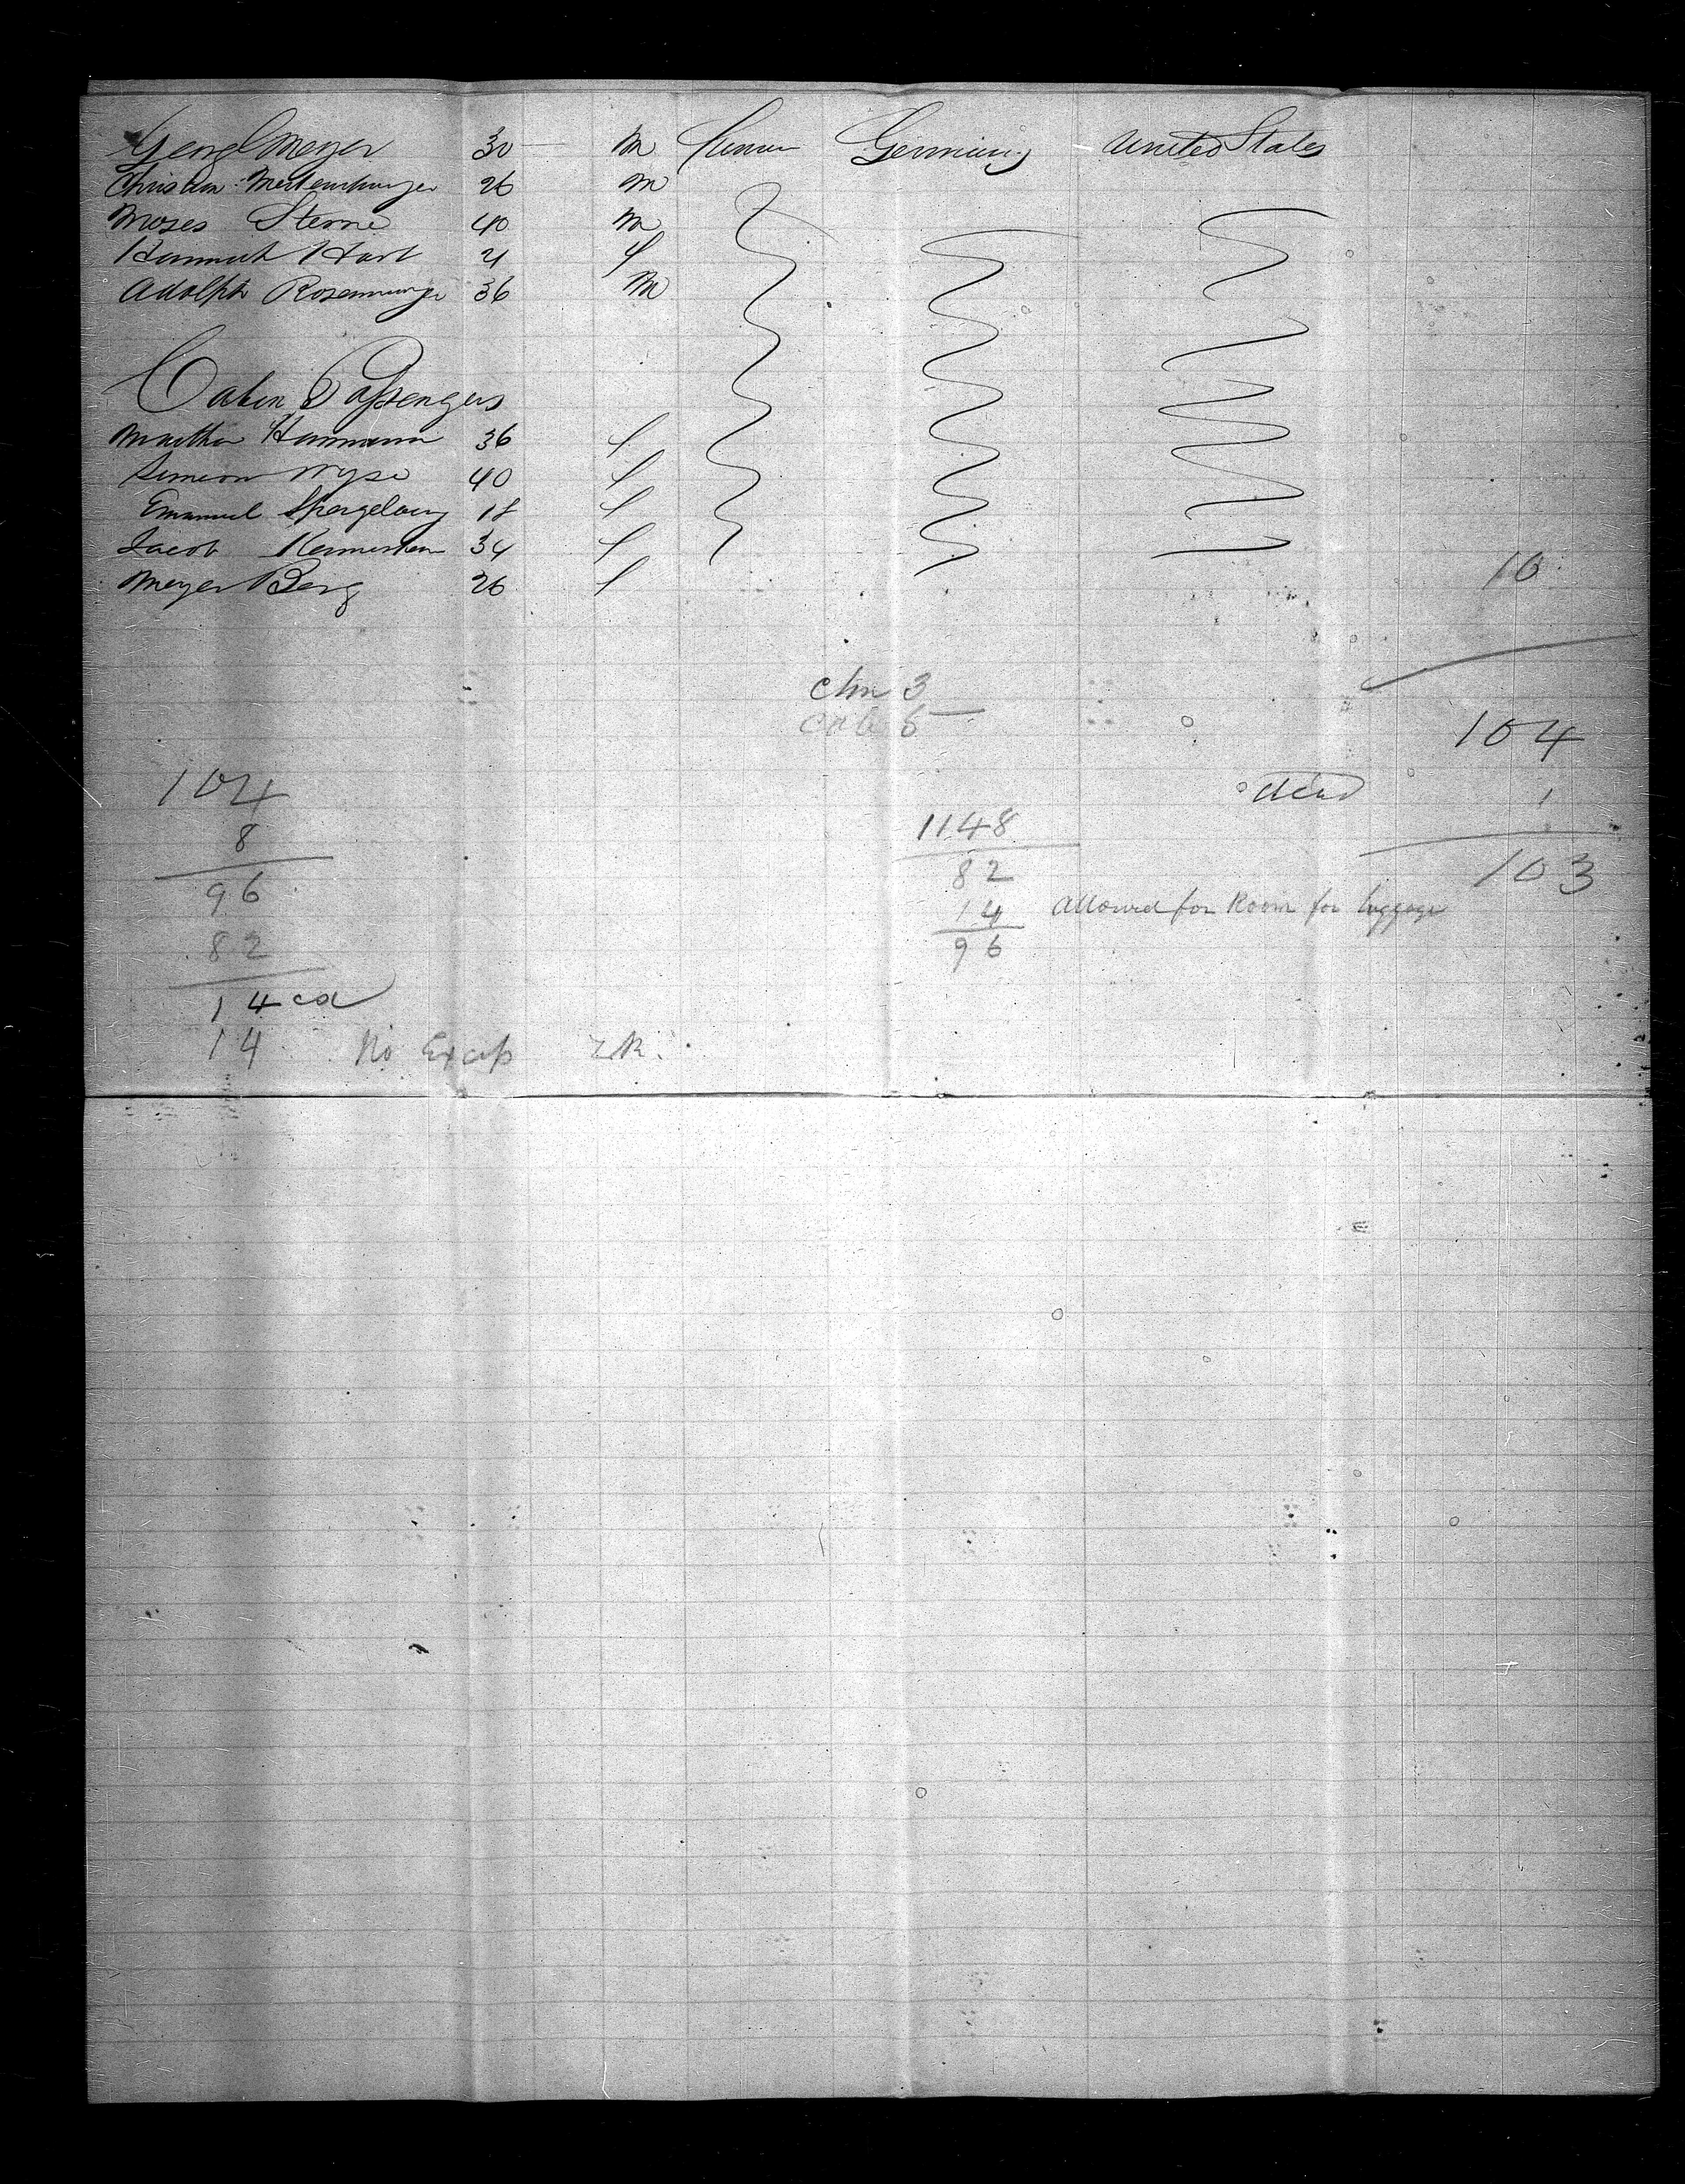 Georg Meyer 30 m Germany United States
Christian 26 m
Moses Sterne 40 m
Hannah Hart 21 f
Adolph 36 m
Cabin Passengers
Martha Hermann 36 f
Simeon Wyse 40 f
Emanuel 18 f
Jacob 34 f
Meyer Berg 26 f
10
chn 3
cab 5
104
dead 1
103
104
8
96
82
14
14 No Excess
1148
82
14 allowed for Room for luggage
96